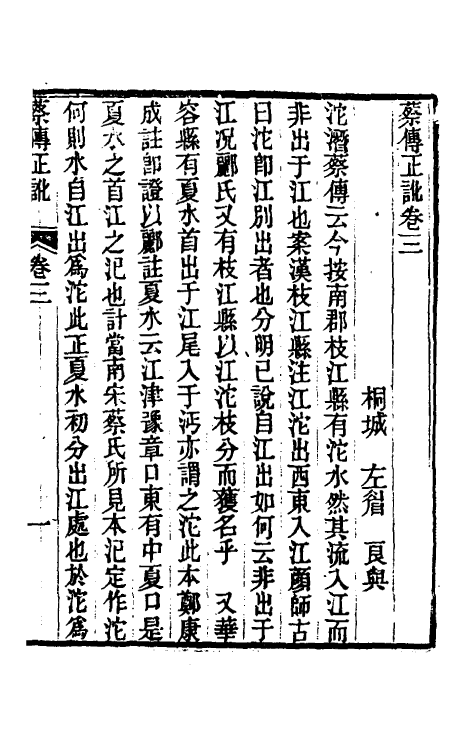 蔡傳正訛卷三
桐城　左眉　良與
沱濳蔡傳云今按南郡枝江縣有沱水然其流入江而
非出于江也案漢枝江縣注江沱出西東入江顔師古
曰沱卽江别出者也分明已說自江出如何云非出于
江况酈氏又有枝江縣以江沱枝分而獲名乎　又華
容縣有夏水首出于江尾入于沔亦謂之沱此本鄭康
成註卽證以酈註夏水云江津豫章口東有中夏口是
夏水之首江之汜也計當南宋蔡氏所見本汜定作沱
何則水自江出爲沱此正夏水初分出江處也於沱爲
蔡傳正訛　卷三　一